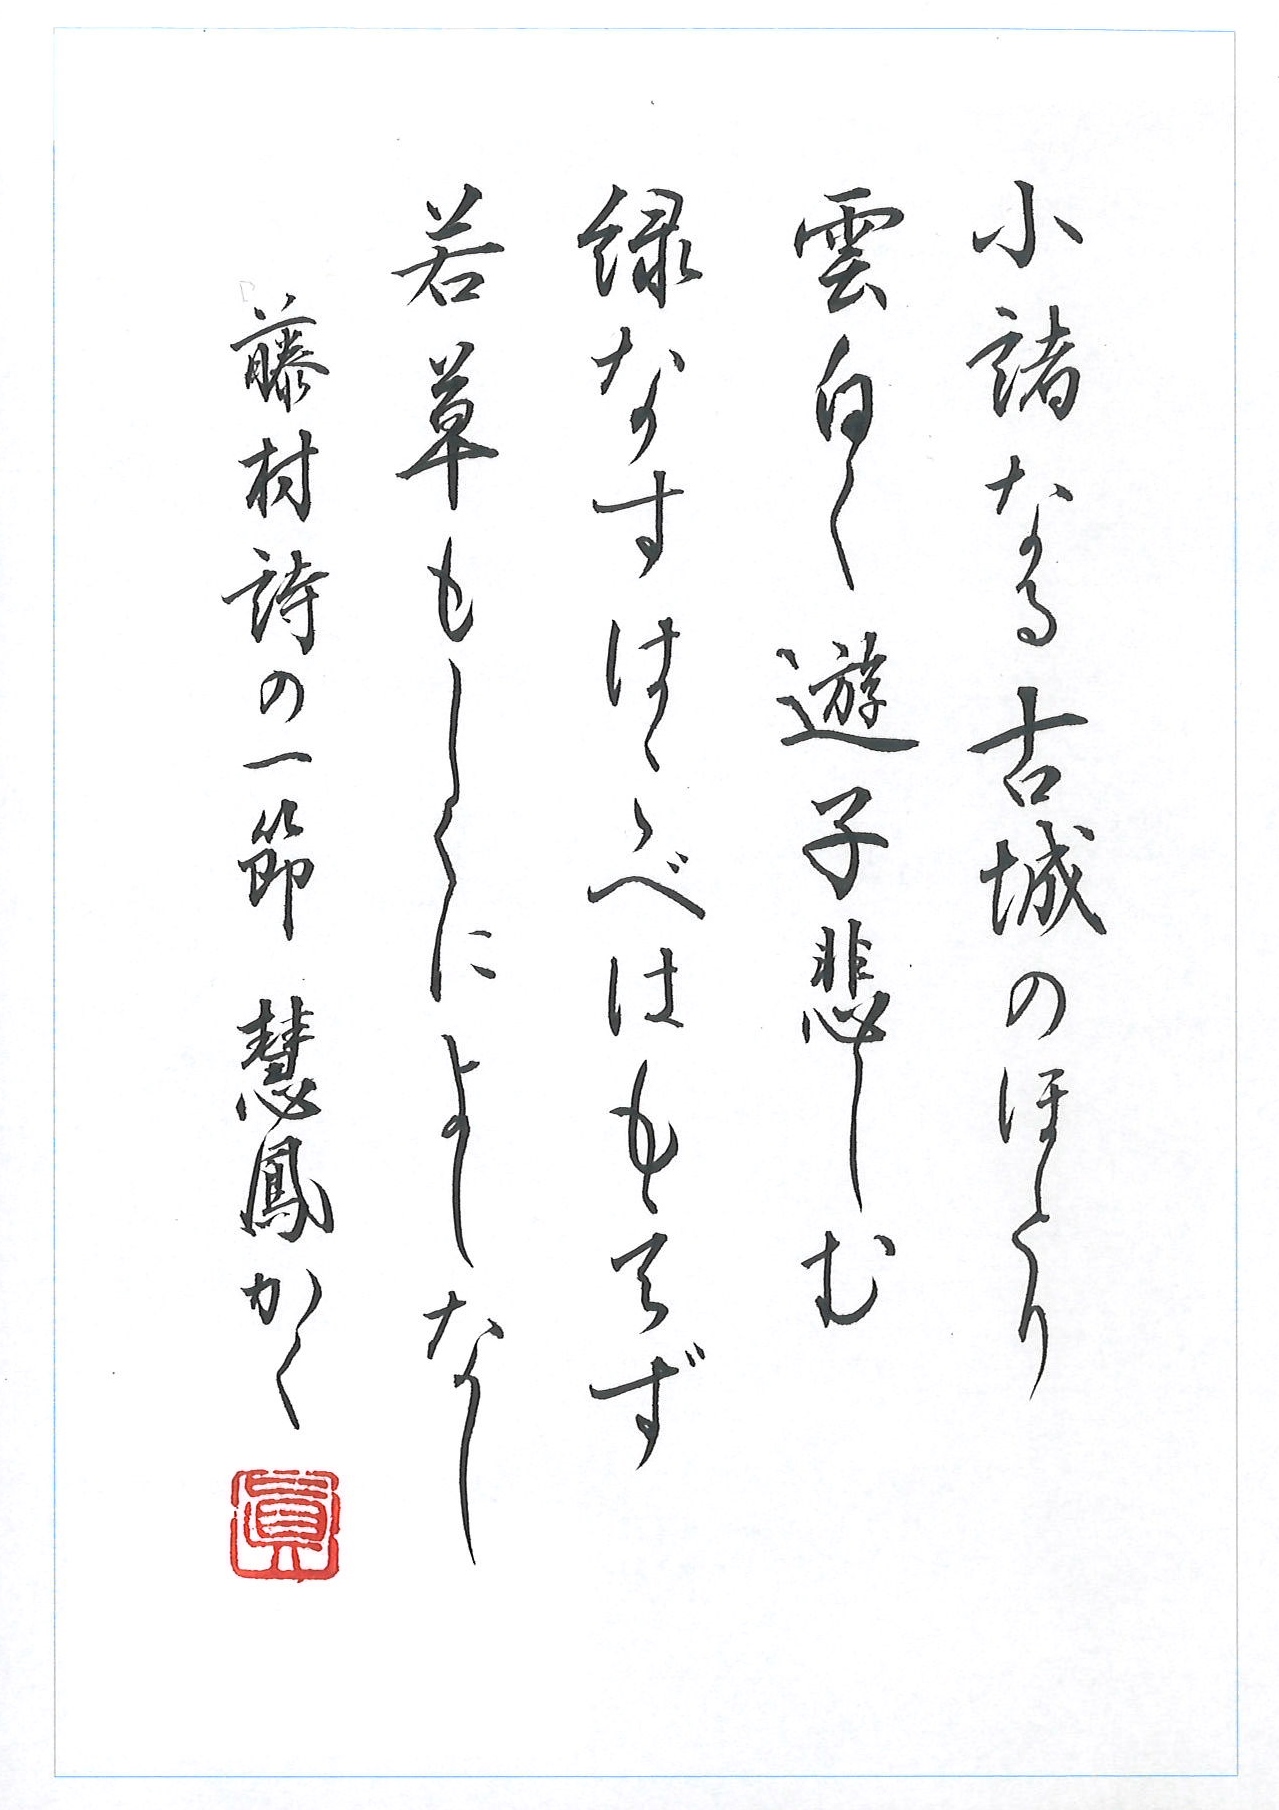 小諸なる古城のほとり
雲白く遊子悲しむ
緑なすはこべはもえず
若草もしくによしなし
藤村詩の一節 慧鳳かく
眞